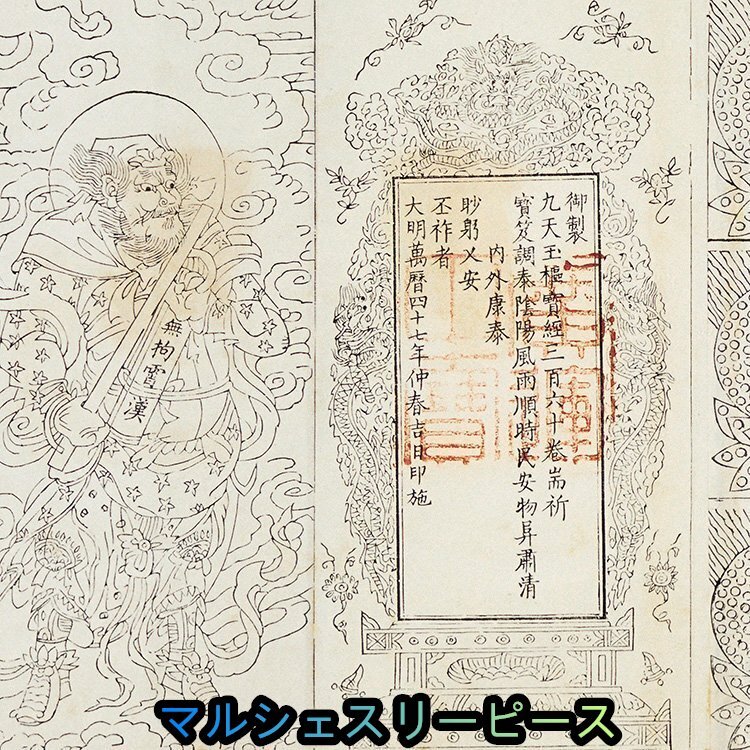 御製
九天玉樞寶經三百六十卷耑祈
寶笈調泰陰陽風雨順時民安物阜肅清
内外康泰
眇躬乂安
丕祚者
大明萬曆四十七年仲春吉日印施
無拘霄漢
マルシェスリーピース